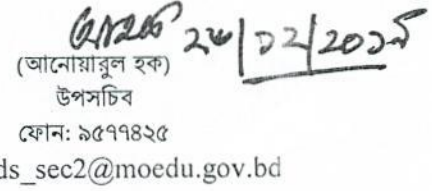 (আনোয়ারুল হক)
উপসচিব
ফোন: ৯৫৭৭৪২৫
ds_sec2@moedu.gov.bd